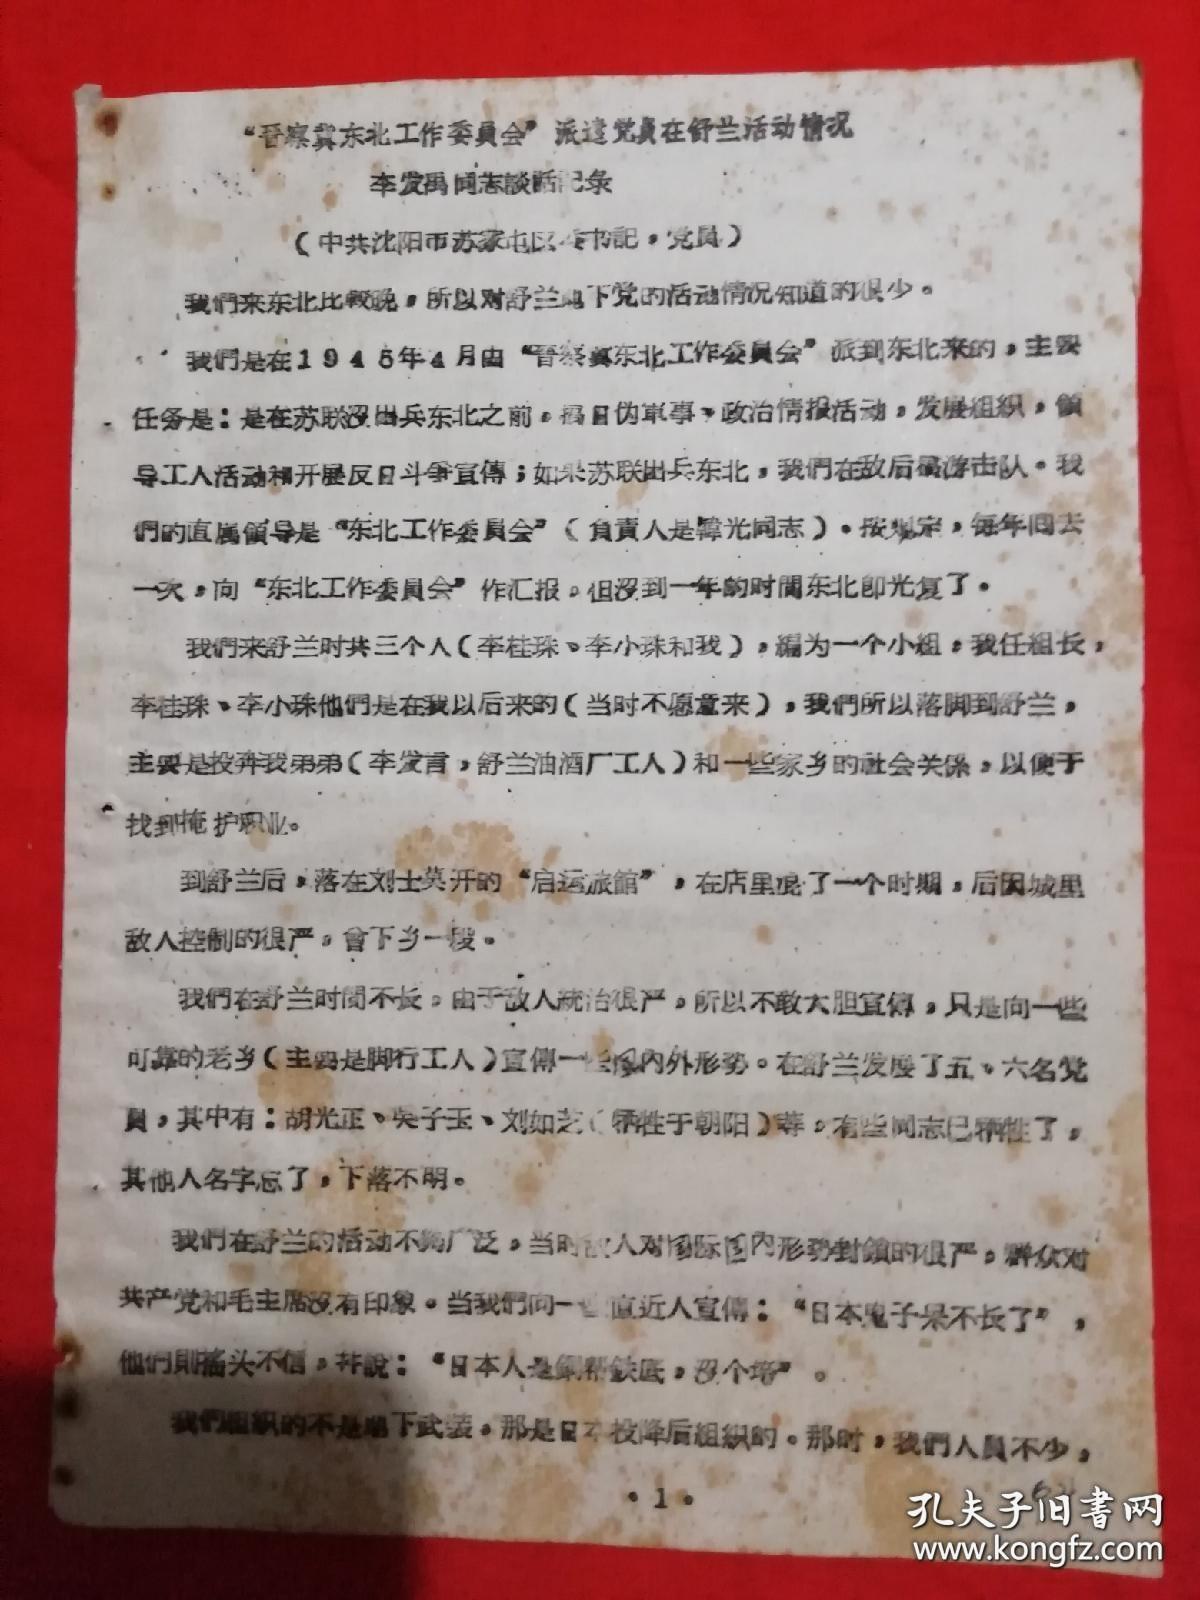 “晋察冀东北工作委員会”派遣党員在舒兰活动情况
李发禹同志談話記录
（中共沈阳市苏家屯区委书記，党員）
我們来东北比較晚，所以对舒兰地下党的活动情况知道的很少。
我們是在1945年4月由“晋察冀东北工作委員会”派到东北来的，主要
任务是：是在苏联没出兵东北之前，搞日伪軍事、政治情报活动，发展组织，領
导工人活动和开展反日斗爭宣傳；如果苏联出兵东北，我們在敌后搞游击队。我
們的直属領导是“东北工作委員会”（負責人是韓光同志）。按规定，每年回去
一次，向“东北工作委員会”作汇报。但没到一年的时間东北即光复了。
我們来舒兰时共三个人（李桂珠、李小珠和我），編为一个小组，我任组长，
李桂珠、李小珠他們是在我以后来的（当时不愿意来），我們所以落脚到舒兰，
主要是投奔我弟弟（李发言，舒兰油酒厂工人）和一些家乡的社会关係，以便于
找到掩护职业。
到舒兰后，落在刘士英开的“启运旅館”，在店里混了一个时期，后因城里
敌人控制的很严，曾下乡一段。
我們在舒兰时間不长，由于敌人統治很严，所以不敢大胆宣傳，只是向一些
可靠的老乡（主要是脚行工人）宣傳一些国内外形势。在舒兰发展了五、六名党
員，其中有：胡光正、吳子玉、刘如芝（牺牲于朝阳）等，有些同志已牺牲了，
其他人名字忘了，下落不明。
我們在舒兰的活动不夠广泛，当时敌人对国际国内形势封鎖的很严，群众对
共产党和毛主席没有印象。当我們向一些直近人宣傳：“日本鬼子呆不长了”，
他們則搖头不信，幷說：“日本人是銅帮鉄底，没个垮”。
我們组织的不是地下武装，那是日本投降后组织的。那时，我們人員不少，
·1·
孔夫子旧书网
www.kongfz.com